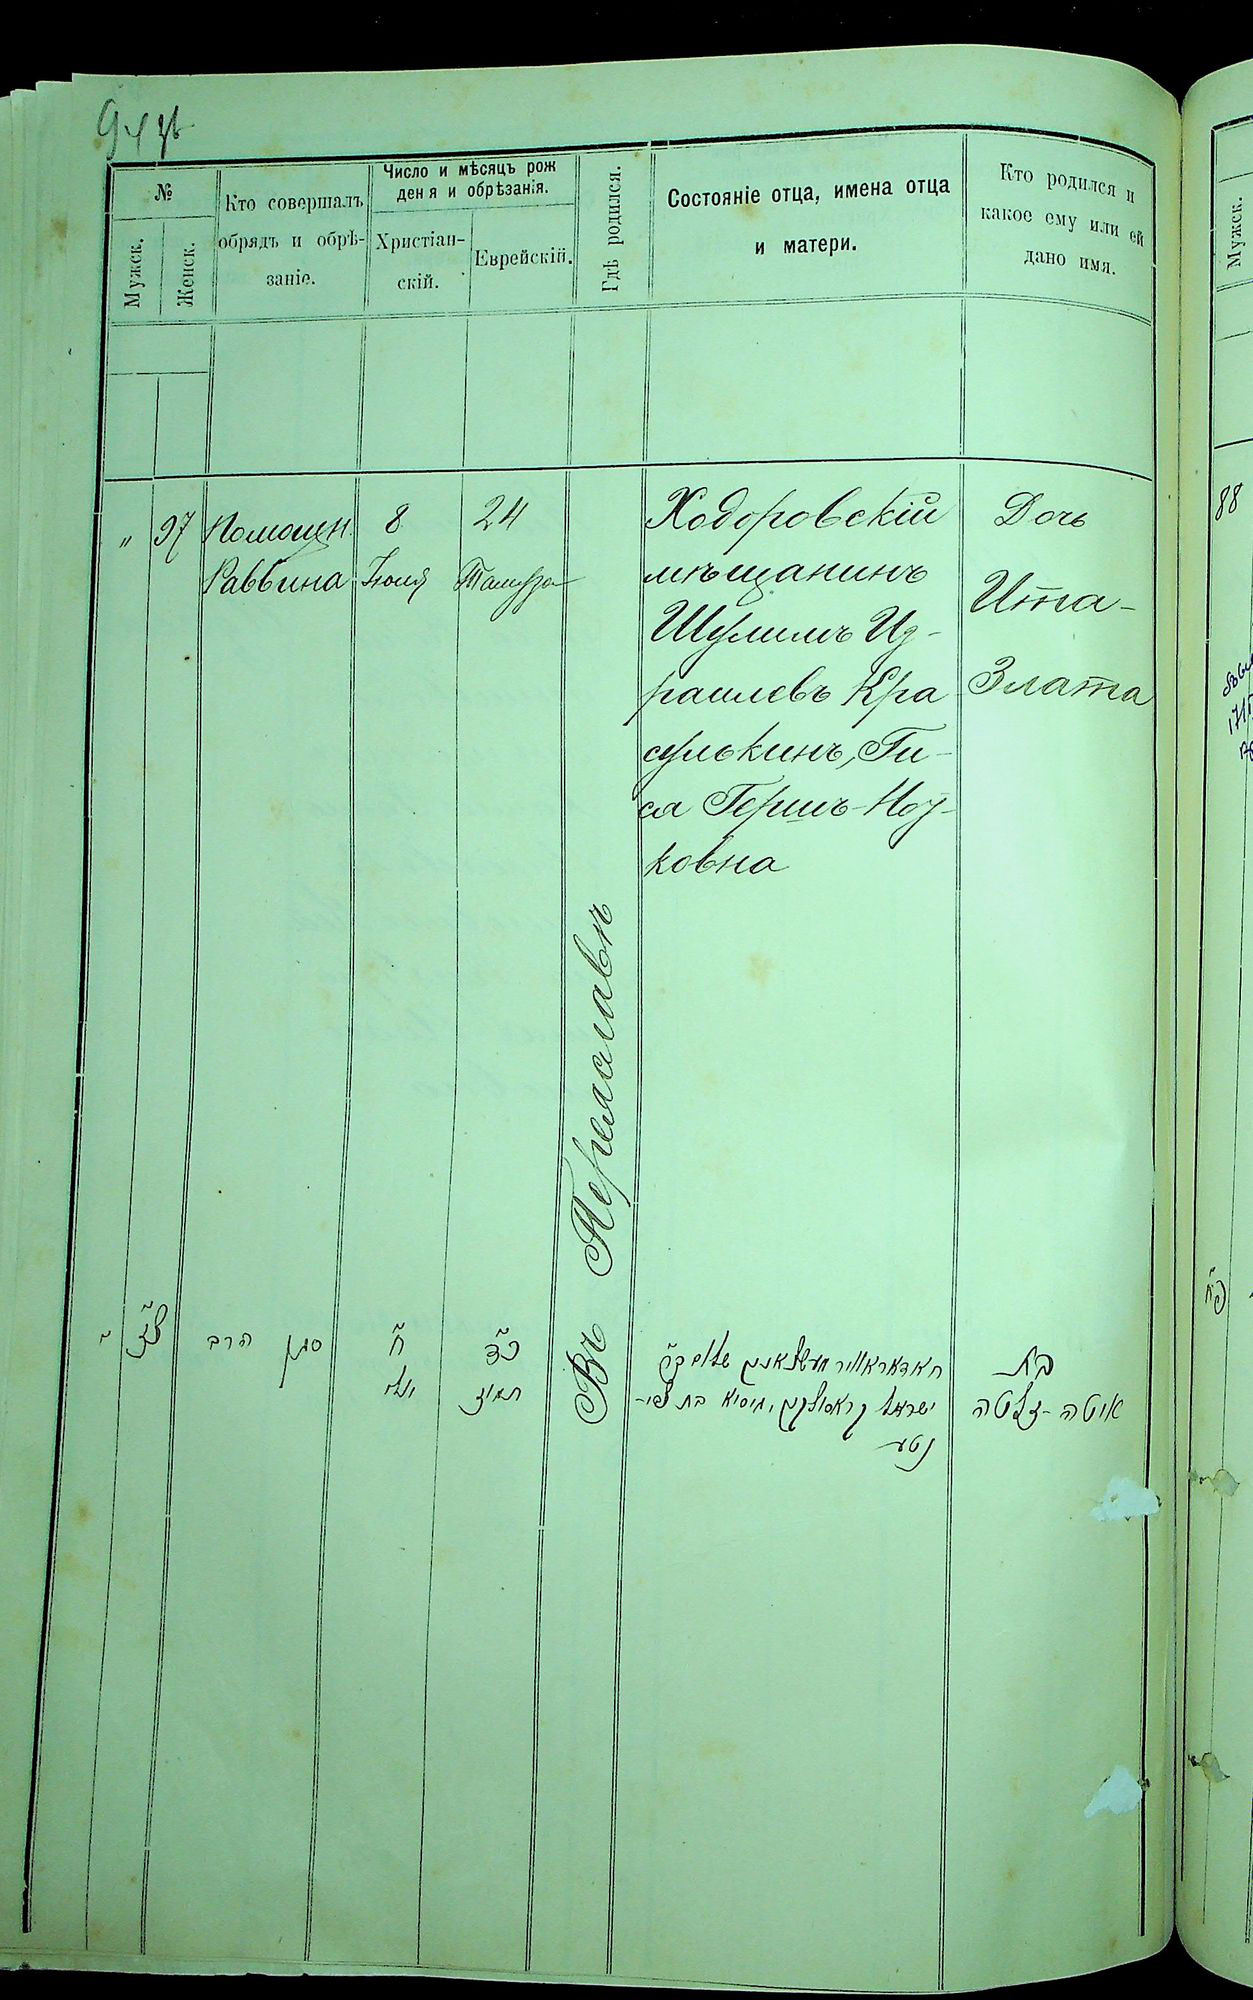 №
Мужск.
Женск.
Кто совершалъ
обрядъ и обрѣ-
заніе.
Число и мѣсяцъ рож
ден я и обрѣзанія.
Христіан-
скій.
Еврейскій.
Гдѣ родился.
Состояніе отца, имена отца
и матери.
Кто родился и
какое ему или ей
дано имя.
"
97
Помощн.
Раввина
8
Іюля
24
Тамуза
Въ Переяславѣ
Ходоровскій
мѣщанинъ
Шулимъ Из-
раилевъ Кра
сулькинъ, Ги-
ся Гершъ-Ноу-
ковна
Дочь
Ита-
Злата
סגן הרב
ח
יולי
כד
תמוז
שלום
ישראל בת צבי-
נטע
בת
איטה-זלטה
Мужск.
88